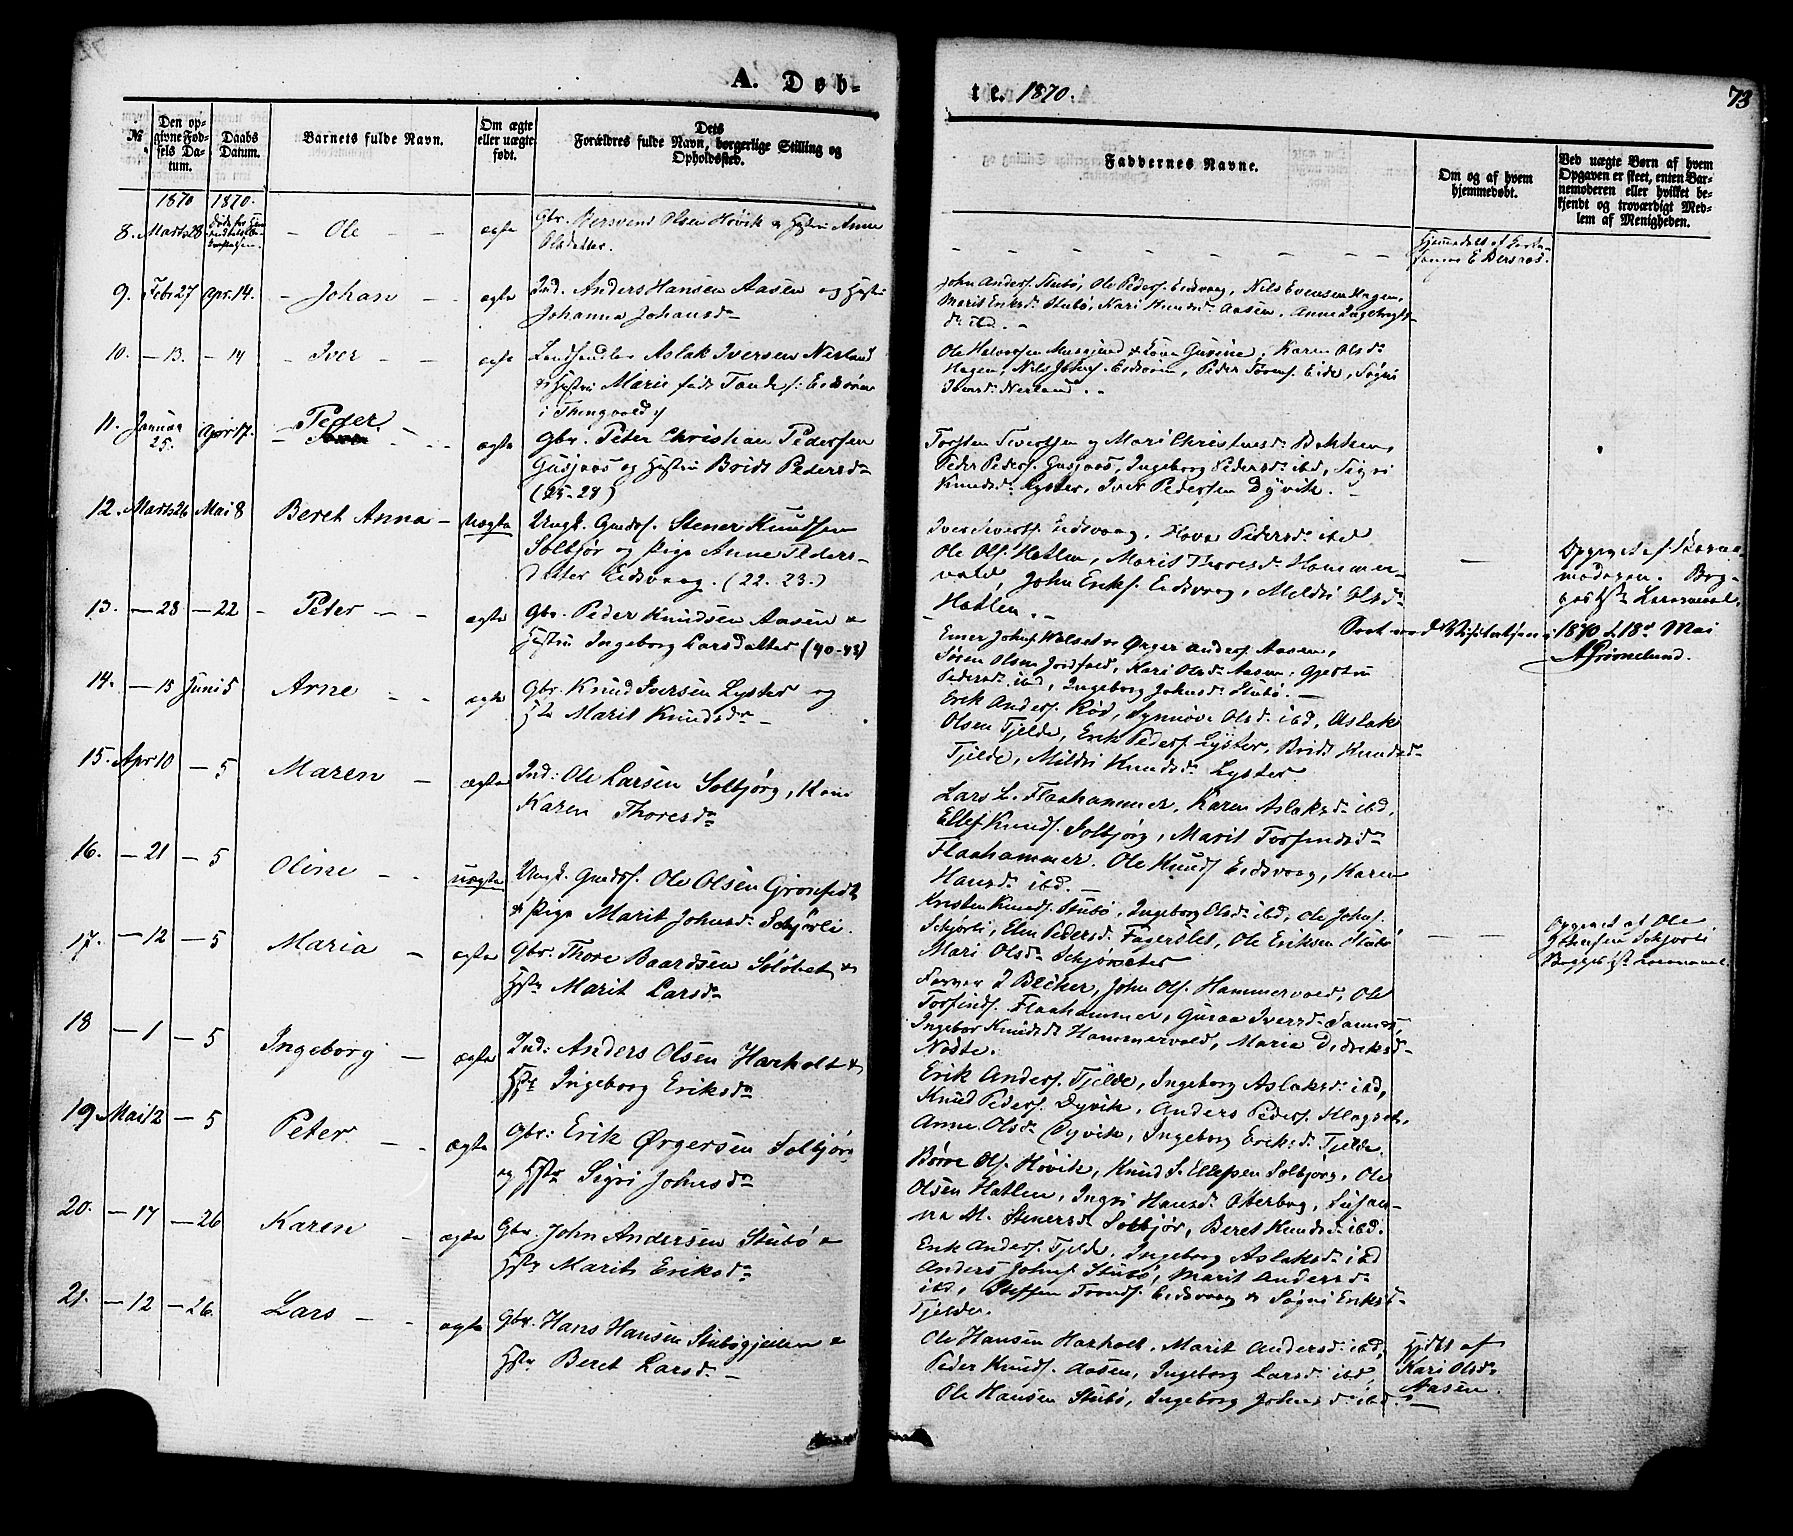 A. Døb-
te. 1870.
73
№
Den op-
givne Fød-
sels Da-
tum.
Daabs
Datum.
Barnets fulde Navn.
Om ægte
eller uægte
født.
Dets
Forældres fulde Navn, borgerlige Stilling og
Opholdssted.
Faddernes Navne.
Om og af hvem
hjemmedøbt.
Ved uægte Børn af hvem
Opgaven er skeet, enten Bar-
nemoderen eller hvilket be-
kjendt og troværdigt Med-
lem af Menigheden.
1870 1870.
8. Marts 28 - Ole - - ægte
Gbr. Bersvend Olsen Høvik & Hustru Anne
Olsdatter.
Hjemmedøbt af
E Bersaas.
9. Febr 27 Apr. 14. - Johan - - ægte
Ind. Anders Hansen Aasen og Hustru
Johanna Johansd.
John Anders. Stubø, Ole Peders. Eidsvaag, Nils Evensen Hagen,
Marit Eriksd. Stubø, Kari Knudsd. Aasen, Anne Ingebrigts-
d. ibd. -
10. - 13. - 14 - Iver - - ægte
Landhandler Aslak Iversen Nerland
& Hustru Marie født Eidsøren
i Thingvold
Ole Halvorsen & Kone Gurine, Karen Olsd.
Hagen, Nils Johns. Eidsøren, Peder Eide, Sigri
Iversd. Nerland. -
11. Januar
25. April 17. - Peder - ægte
Gbr. Peter Christian Pedersen
Gusjaas og Hustru Bridt Pedersd.
(25-28)
Torsten Sivertsen og Mari Christensd. Bakken,
Peder Peders. Gusjaas, Ingeborg Pedersd. ibd, Sigri
Knudsd. Lyster, Iver Pedersen Dyvik. -
12. Marts 26 Mai 8 Beret Anna - Uægte
Ungk. Gaards. Stener Knudsen
Solbjør og Pige Anne Peders-
datter Eidsvaag. (22. 23.)
Iver Siverts. Eidsvaag, Pedersd. ibd
Ole Ols. Hatlen, Marit Thoresd. Hammer-
vold, John Eriks. Eidsvaag, Mildri Olsd.
Hatlen. -
Opgivet af Barne-
moderen.
13. - 28 - 22 - Peter - - ægte
Gbr. Peder Knudsen Aasen &
Hustru Ingeborg Larsdatter (40-43)
Einer Johns. Valset & Ørger Anders. Aasen,
Søren Olsen Jordfald, Kari Olsd. Aasen, Gjertru
Pedersd. ibd, Ingeborg Johnsd. Stubø. -
Seet ved Visitatsen 1870 d. 18. Mai
14. - 15 Juni 5 Arne - - ægte
Gbr. Knud Iversen Lyster og
H. Marit Knudsd. -
Erik Anders. Rød, Synnøve Olsd. ibd, Aslak
Olsen Tjelde, Erik Peders. Lyster, Bridt Knudsd.
Tjelde, Mildri Knudsd. Lyster.
15. Apr 10 - 5 Maren - ægte
Ind: Ole Larsen Solbjørg, Kone
Karen Thoresd.
Lars L. Flaahammer, Karen Aslaksd. ibd,
Ellef Knuds. Solbjørg, Marit Torfinsd.
Flaahammer. Ole Knuds. Eidsvaag, Karen
Hansd. ibd. -
16. - 21 - 5 Oline - - uægte
Ungk. Gaards. Ole Olsen
& Pige Marit Johnsd. Schjørli.
Kristen Knuds. Stubø, Ingeborg Olsd. ibd, Ole Johns.
Schjørli, Elen Pedersd. Fagerslet, Ole Eriksen Stubø
Mari Olsd.
Opgivet af Ole
Johnsen Schjørli
17. - 12 - 5 Maria - ægte
Gbr. Thore Baardsen &
Hstr Marit Larsd.
J Becker, John Ols. Hammervold, Ole
Torfinds. Flaahammer, Guraa Iversd.
Ingebor Knudsd. Hammervold, Maria Didriksd.
Nødte.
18 - 1 - 5 Ingeborg - ægte
Ind: Anders Olsen Harholt &
Hstr Ingeborg Eriksd.
Erik Anders. Tjelde, Ingeborg Aslaksd. ibd,
Knud Peders. Dyvik, Anders Peders.
Anne Olsd. Dyvik, Ingeborg Eriksd. Tjelde.
19. Mai 12 - 5 Peter. - ægte
Gbr: Erik Ørgersen Solbjør
og Hstr Sigri Johnsd.
Børre Ols. Høvik, Knud S. Ellefsen Solbjørg, Ole
Olsen Hatlen, Ingri Hansd. Otterbog, Susan-
na M. Stenersd. Solbjør, Beret Knudsd. ibd.
20. - 17 - 26 Karen - ægte
Gbr. John Andersen Stubø &
Hstr Marit Eriksd.
Erik Anders. Tjelde, Ingeborg Aslaksd. ibd
Anders Johns. Stubø, Marit Andersd.
ibd, Steffen Tronds. Eidsvaag & Sigri Eriksd.
Tjelde.
21. - 12 - 26. Lars - - ægte
Gbr. Hans Hansen Stubøgjeilen &
Hstr Beret Larsd. -
Ole Hansen Harholt, Marit Andersd. ibd,
Peder Knuds. Aasen, Ingeborg Larsd. ibd,
Ole Hansen Stubø, Ingeborg Johnsd. ibd.
Hjdbt af
Kari Olsd.
Aasen.